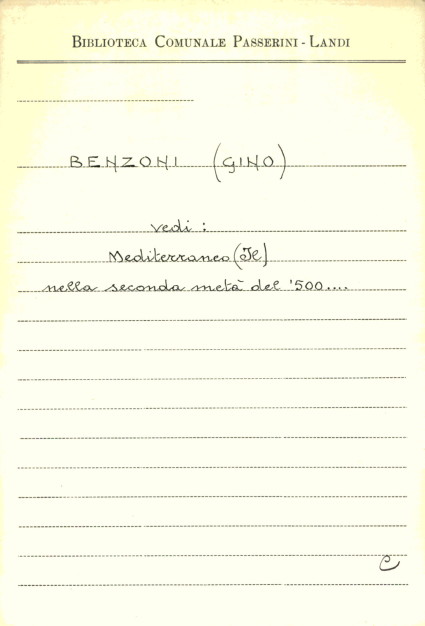 BIBLIOTECA COMUNALE PASSERINI - LANDI
BENZONI (GINO)
vedi :
Mediterraneo (Il)
nella seconda metà del '500....
C